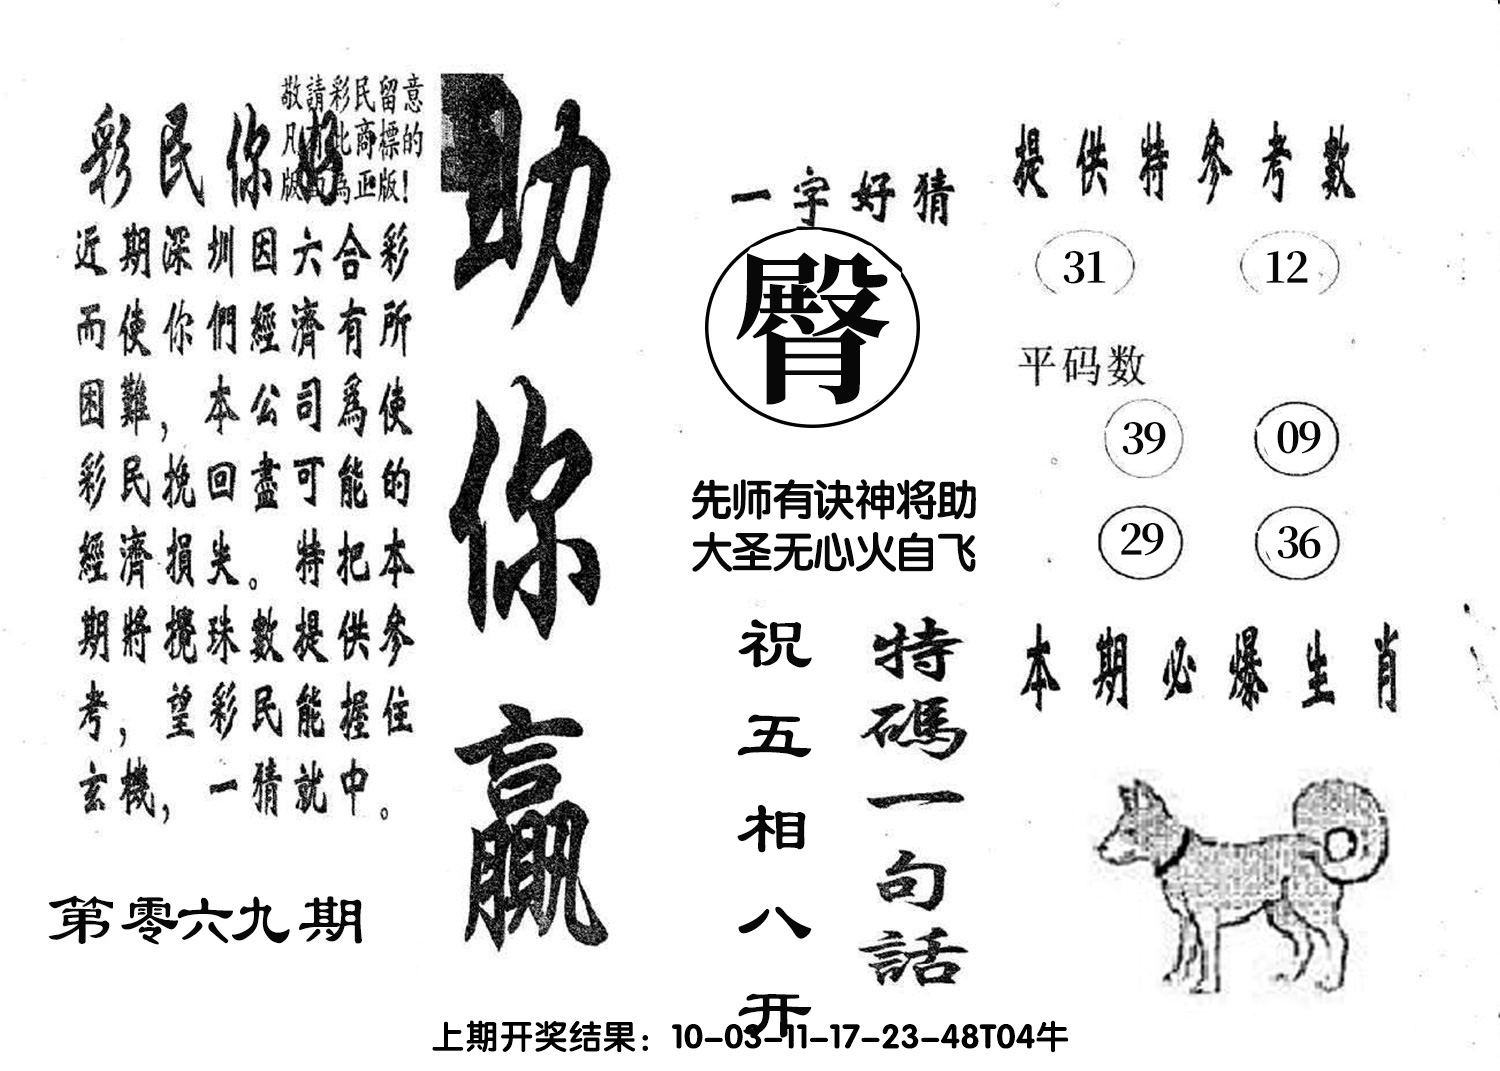 敬請彩民留意
凡有此商標的
版面為正版！
彩民你好
近期深圳因六合彩
而使你們經濟有所
困難，本公司爲使
彩民挽回盡可能的
經濟損失。特把本
期將攪珠數提供參
考，望彩民能握住
玄機，一猜就中。
第零六九期
助你贏
一字好猜
臀
先师有诀神将助
大圣无心火自飞
特碼一句話
祝五相八开
提供特参考數
31 12
平码数
39 09
29 36
本期必爆生肖
上期开奖结果：10-03-11-17-23-48T04牛